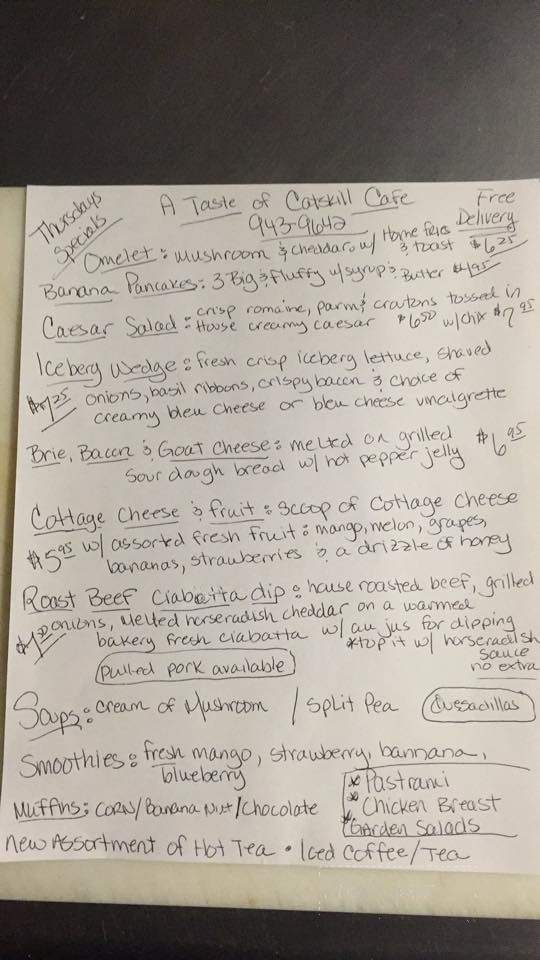 Thursdays Specials
A Taste of Catskill Cafe
943-9642
Free Delivery
Omelet: Mushroom & cheddar w/ Home fries & toast $6.25
Banana Pancakes: 3 Big & Fluffy w/ syrup & Butter $4.95
Caesar Salad: crisp romaine, parm & crutons tossed in
House creamy caesar $6.50 w/ chix $7.95
Iceberg Wedge: fresh crisp iceberg lettuce, shaved
$7.25 onions, basil ribbons, crispy bacon & choice of
creamy bleu cheese or bleu cheese vinaigrette
Brie, Bacon & Goat Cheese: melted on grilled
sour dough bread w/ hot pepper jelly $6.95
Cottage Cheese & fruit: scoop of Cottage cheese
$5.95 w/ assorted fresh fruit: mango, melon, grapes,
bananas, strawberries & a drizzle of honey
Roast Beef Ciabatta dip: house roasted beef, grilled
onions, melted horseradish cheddar on a warmed
bakery fresh ciabatta w/ au jus for dipping
*top it w/ horseradish
sauce
no extra
pulled pork available
Soups: cream of Mushroom / Split Pea
Quessadillas
Smoothies: fresh mango, strawberry, bannana,
blueberry
Muffins: CORN/Banana Nut/Chocolate
* Pastrami
* Chicken Breast
* Garden Salads
new Assortment of Hot Tea • Iced Coffee/Tea